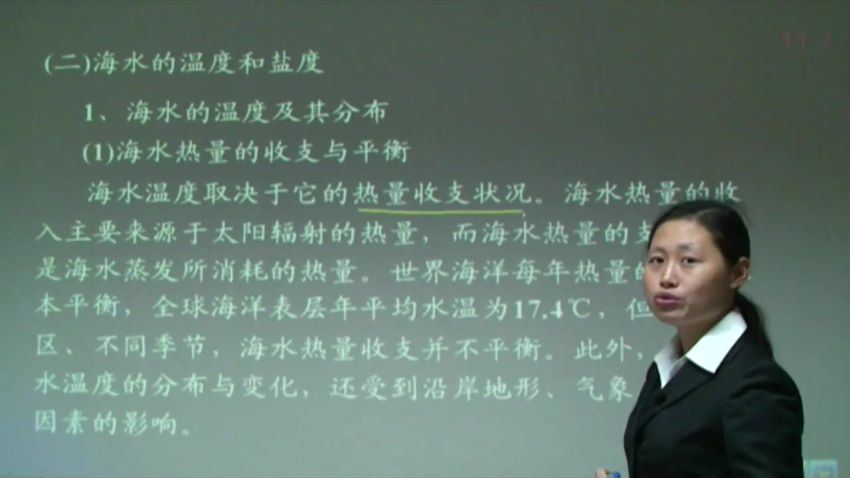 (二)海水的温度和盐度
1、海水的温度及其分布
(1)海水热量的收支与平衡
海水温度取决于它的热量收支状况。海水热量的收
入主要来源于太阳辐射的热量，而海水热量的支
是海水蒸发所消耗的热量。世界海洋每年热量的
本平衡，全球海洋表层年平均水温为17.4℃，但
区、不同季节，海水热量收支并不平衡。此外，
水温度的分布与变化，还受到沿岸地形、气象
因素的影响。